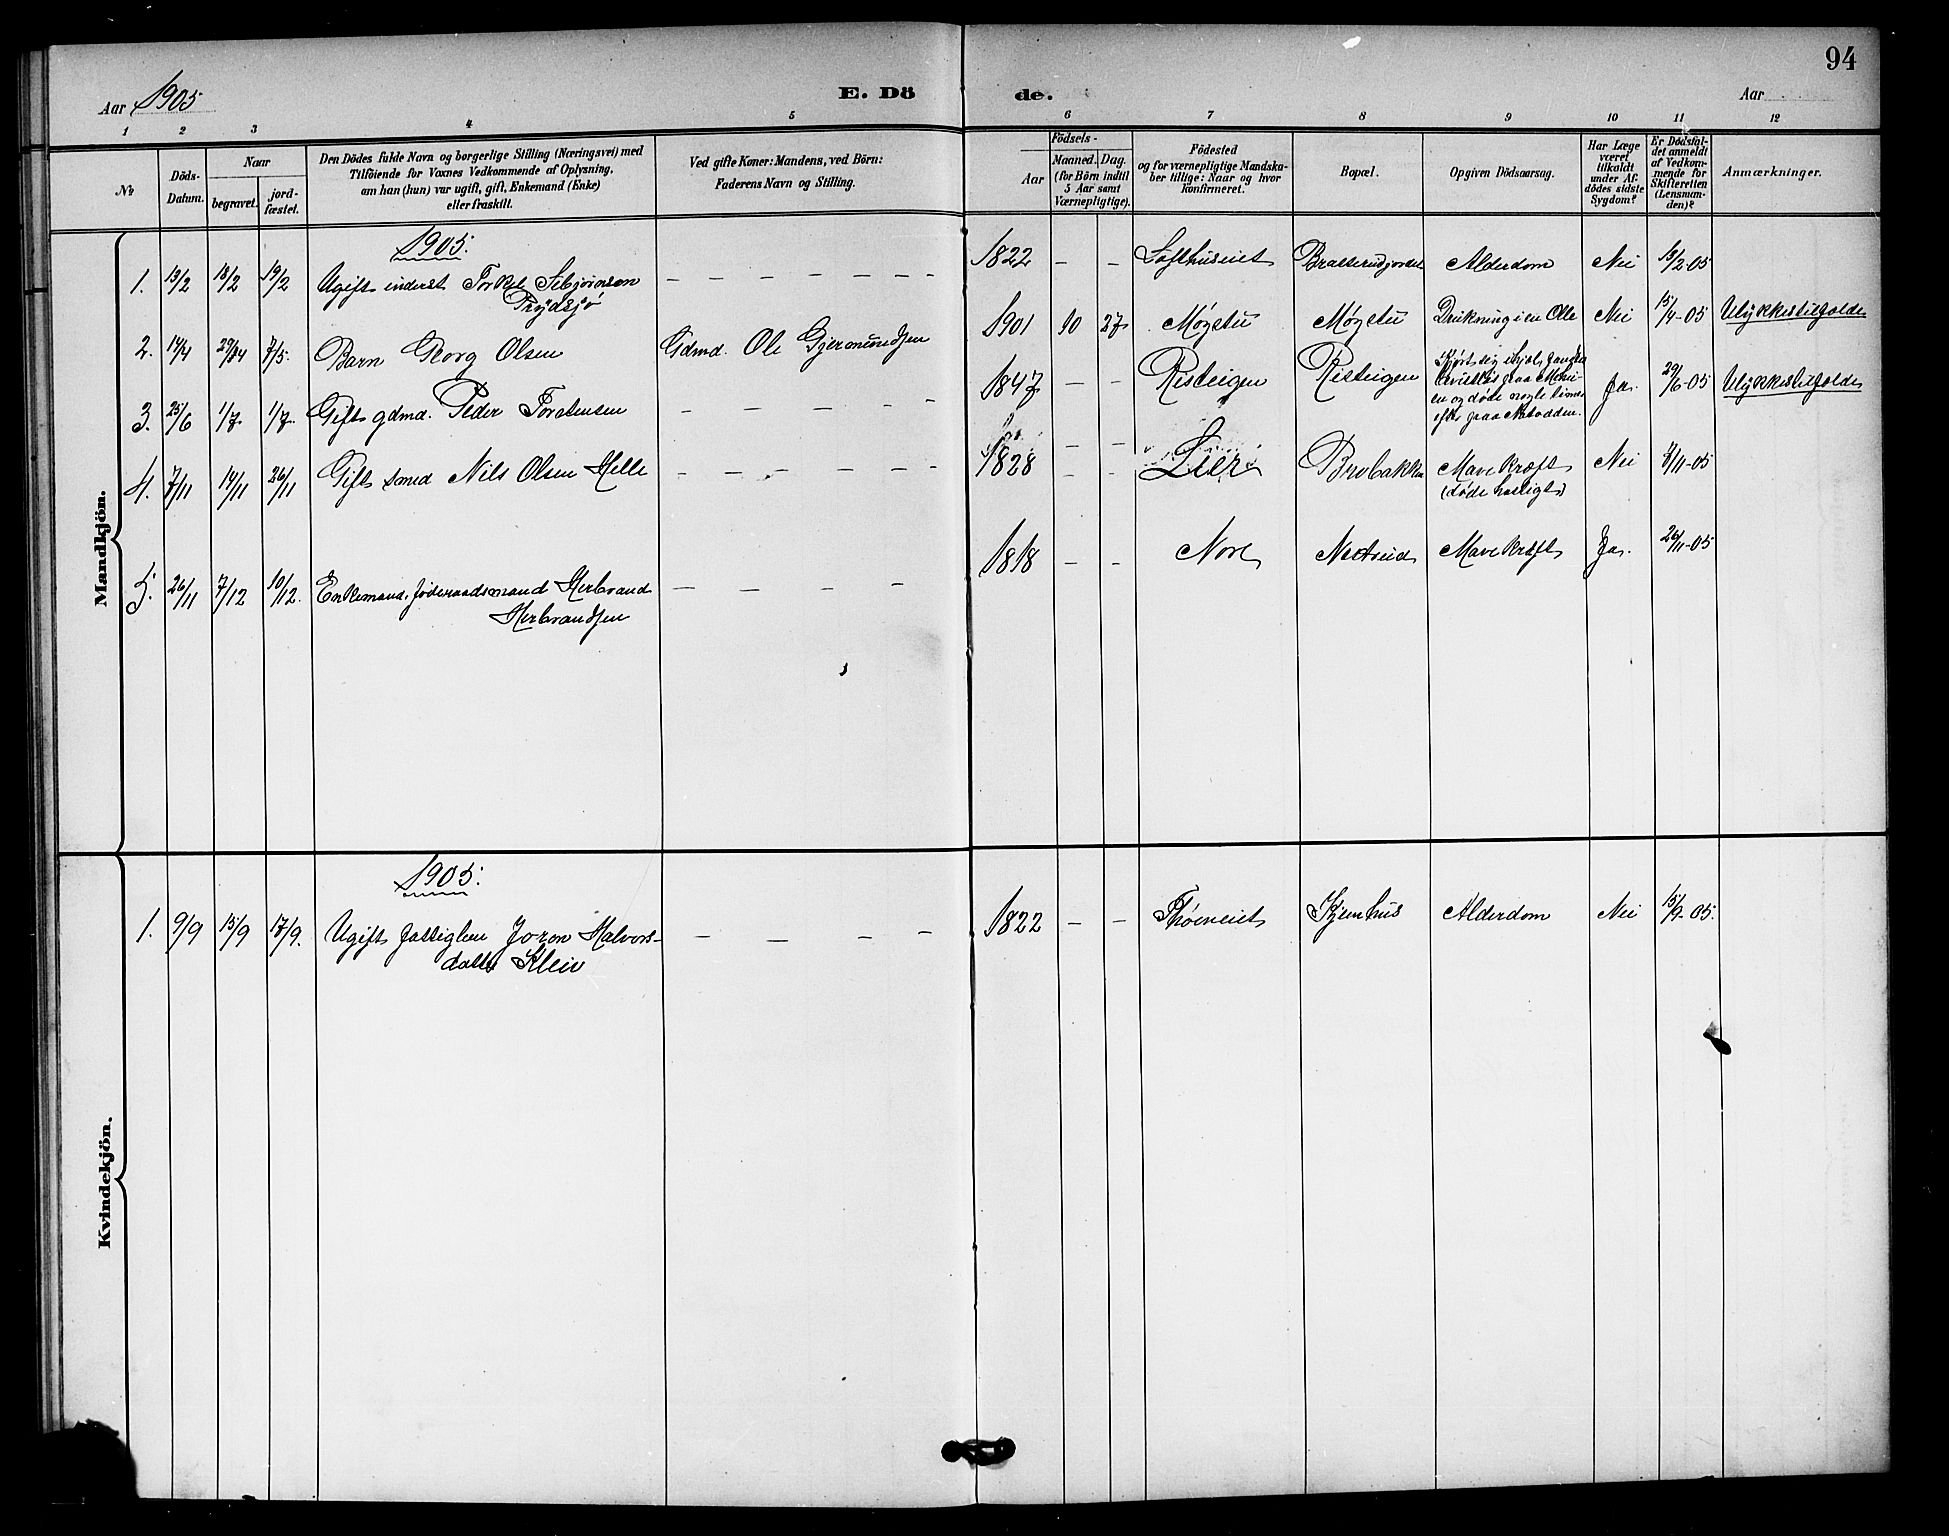 94
Aar 1905
E. Dö
de.
Aar
1 2 3 4 5 6 7 8 9 10 11 12
№
Döds-
Datum.
Naar
begravet.
jord-
fæstet.
Den Dödes fulde Navn og borgerlige Stilling (Næringsvei) med
Tilföiende for Voxnes Vedkommende af Oplysning,
om han (hun) var ugift, gift, Enkemand (Enke)
eller fraskilt.
Ved gifte Koner: Mandens, ved Börn:
Faderens Navn og Stilling.
Födsels-
Aar
Maaned. Dag.
(for Börn indtil
5 Aar samt
Værnepligtige).
Födested
og for værnepligtige Mandska-
ber tillige: Naar og hvor
Konfirmeret.
Bopæl.
Opgiven Dödsaarsag.
Har Læge
været
tilkaldt
under Af-
dödes sidste
Sygdom?
Er Dödsfal-
det anmeldt
af Vedkom-
mende for
Skifteretten
(Lensman-
den)?
Anmærkninger.
Mandkjön.
1905.
1. 13/2 18/2 19/2 Ugift inderst Torkel Sebjørnsen — — — — — — — 1822 — — Lofthuseiet Bratterudjordet Alderdom Nei 13/2-05
Frøydsjø
2. 14/4 29/04 7/5. Barn Georg Olsen Gdmd. Ole Gjermundsen 1901 10 27 Møystu Møystu Drukning i en Olle Nei 15/4-05 Ulykkestilfælde
3. 25/6 1/7 1/7. Gift gdmd. Peder Torstensen — — — — — 1847 — — Risteigen Risteigen Kjørt sig ihjel,
en og døde nogle timer
efter paa Notodden. Ja. 29/6-05 Ulykkestilfælde
4. 7/11 14/11 26/11 Gift smed Nils Olsen Helle — — — — — — 1828 — — Lier Brobakken Mavekræft Nei 8/11-05
(døde hastigt)
5. 26/11 7/12 10/12. Enkemand, føderaadsmand Herbrand — — — — 1818 — — Nore Nertrud Mavekræft Ja. 26/11-05
Herbrandsen
Kvindekjön.
1905.
1. 9/9 15/9 17/9. Ugift fattiglem Joron Halvors- — — — — 1822 — — Frøeneiet Kjemhus Alderdom Nei 15/9-05.
datter Kleiv